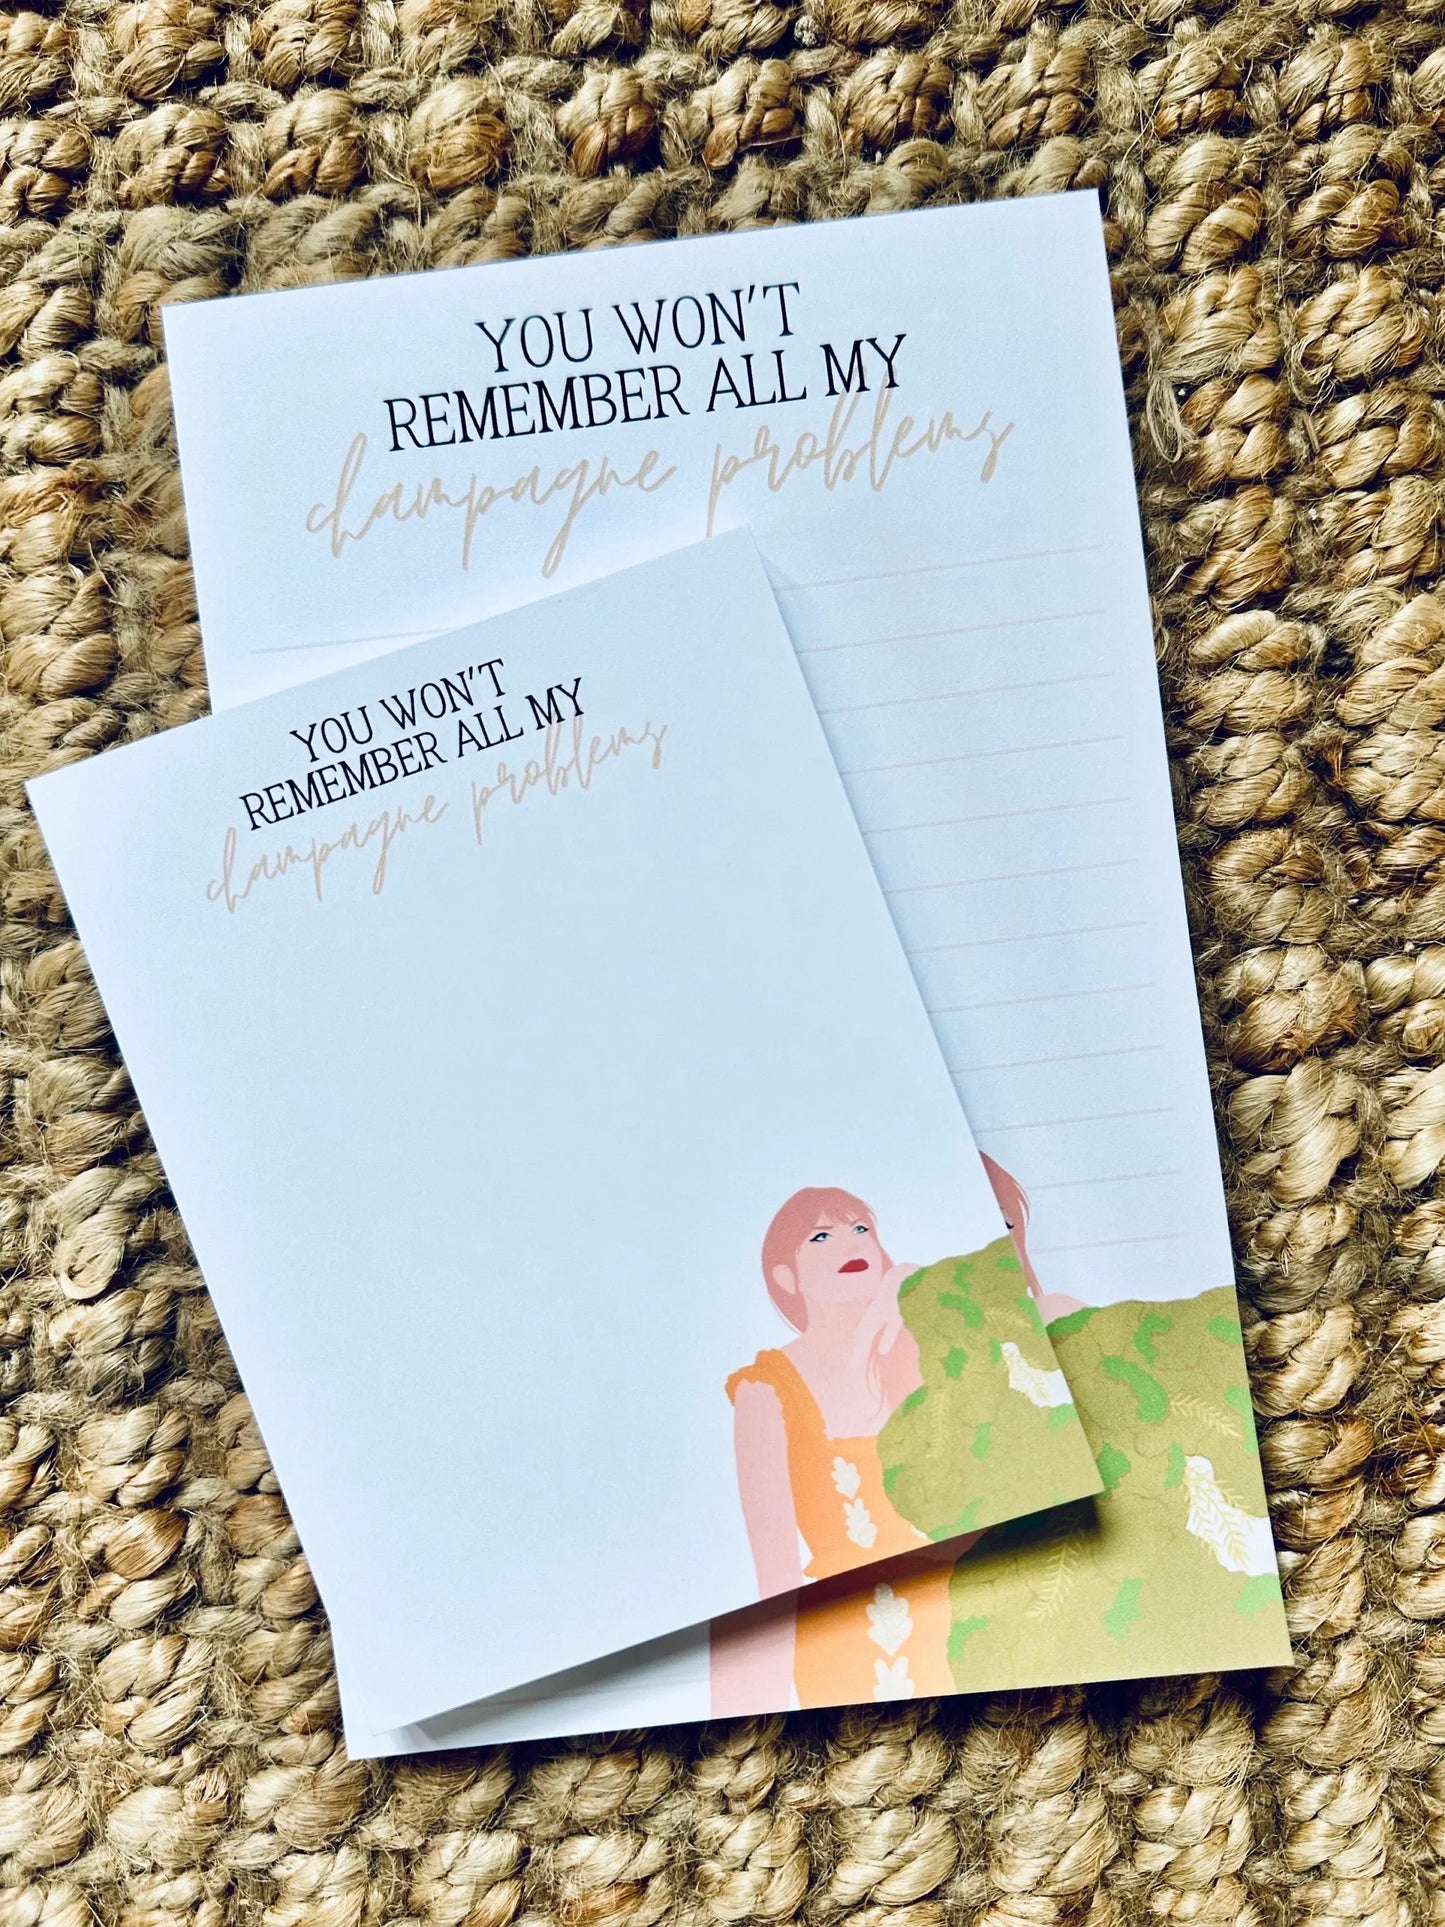 YOU WON'T
REMEMBER ALL MY
champagne problems
YOU WON'T
REMEMBER ALL MY
champagne problems